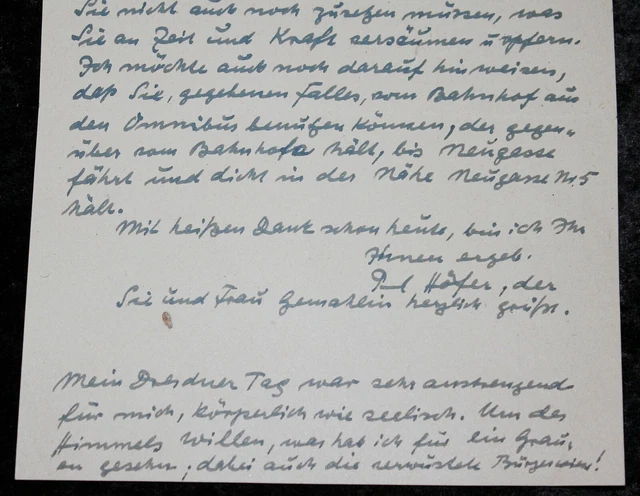 Sie nicht auch noch zusetzen müssen, was
Sie an Zeit und Kraft versäumen u opfern.
Ich möchte auch noch darauf hinweisen,
daß Sie, gegebenen Falles, vom Bahnhof aus
den Omnibus benutzen können, der gegen-
über vom Bahnhofe hält, bis Neugasse
fährt und dicht in der Nähe Neugasse Nr. 5
hält.
Mit heißen Dank schon heute, bin ich Ihr
Ihnen ergeb.
Höfer, der
Sie und Frau Gemahlin herzlich grüßt.
Mein Dresdner Tag war sehr anstrengend
für mich, körperlich wie seelisch. Um des
Himmels Willen, was hab ich für ein Grau-
en gesehn; dabei auch die verwüstete